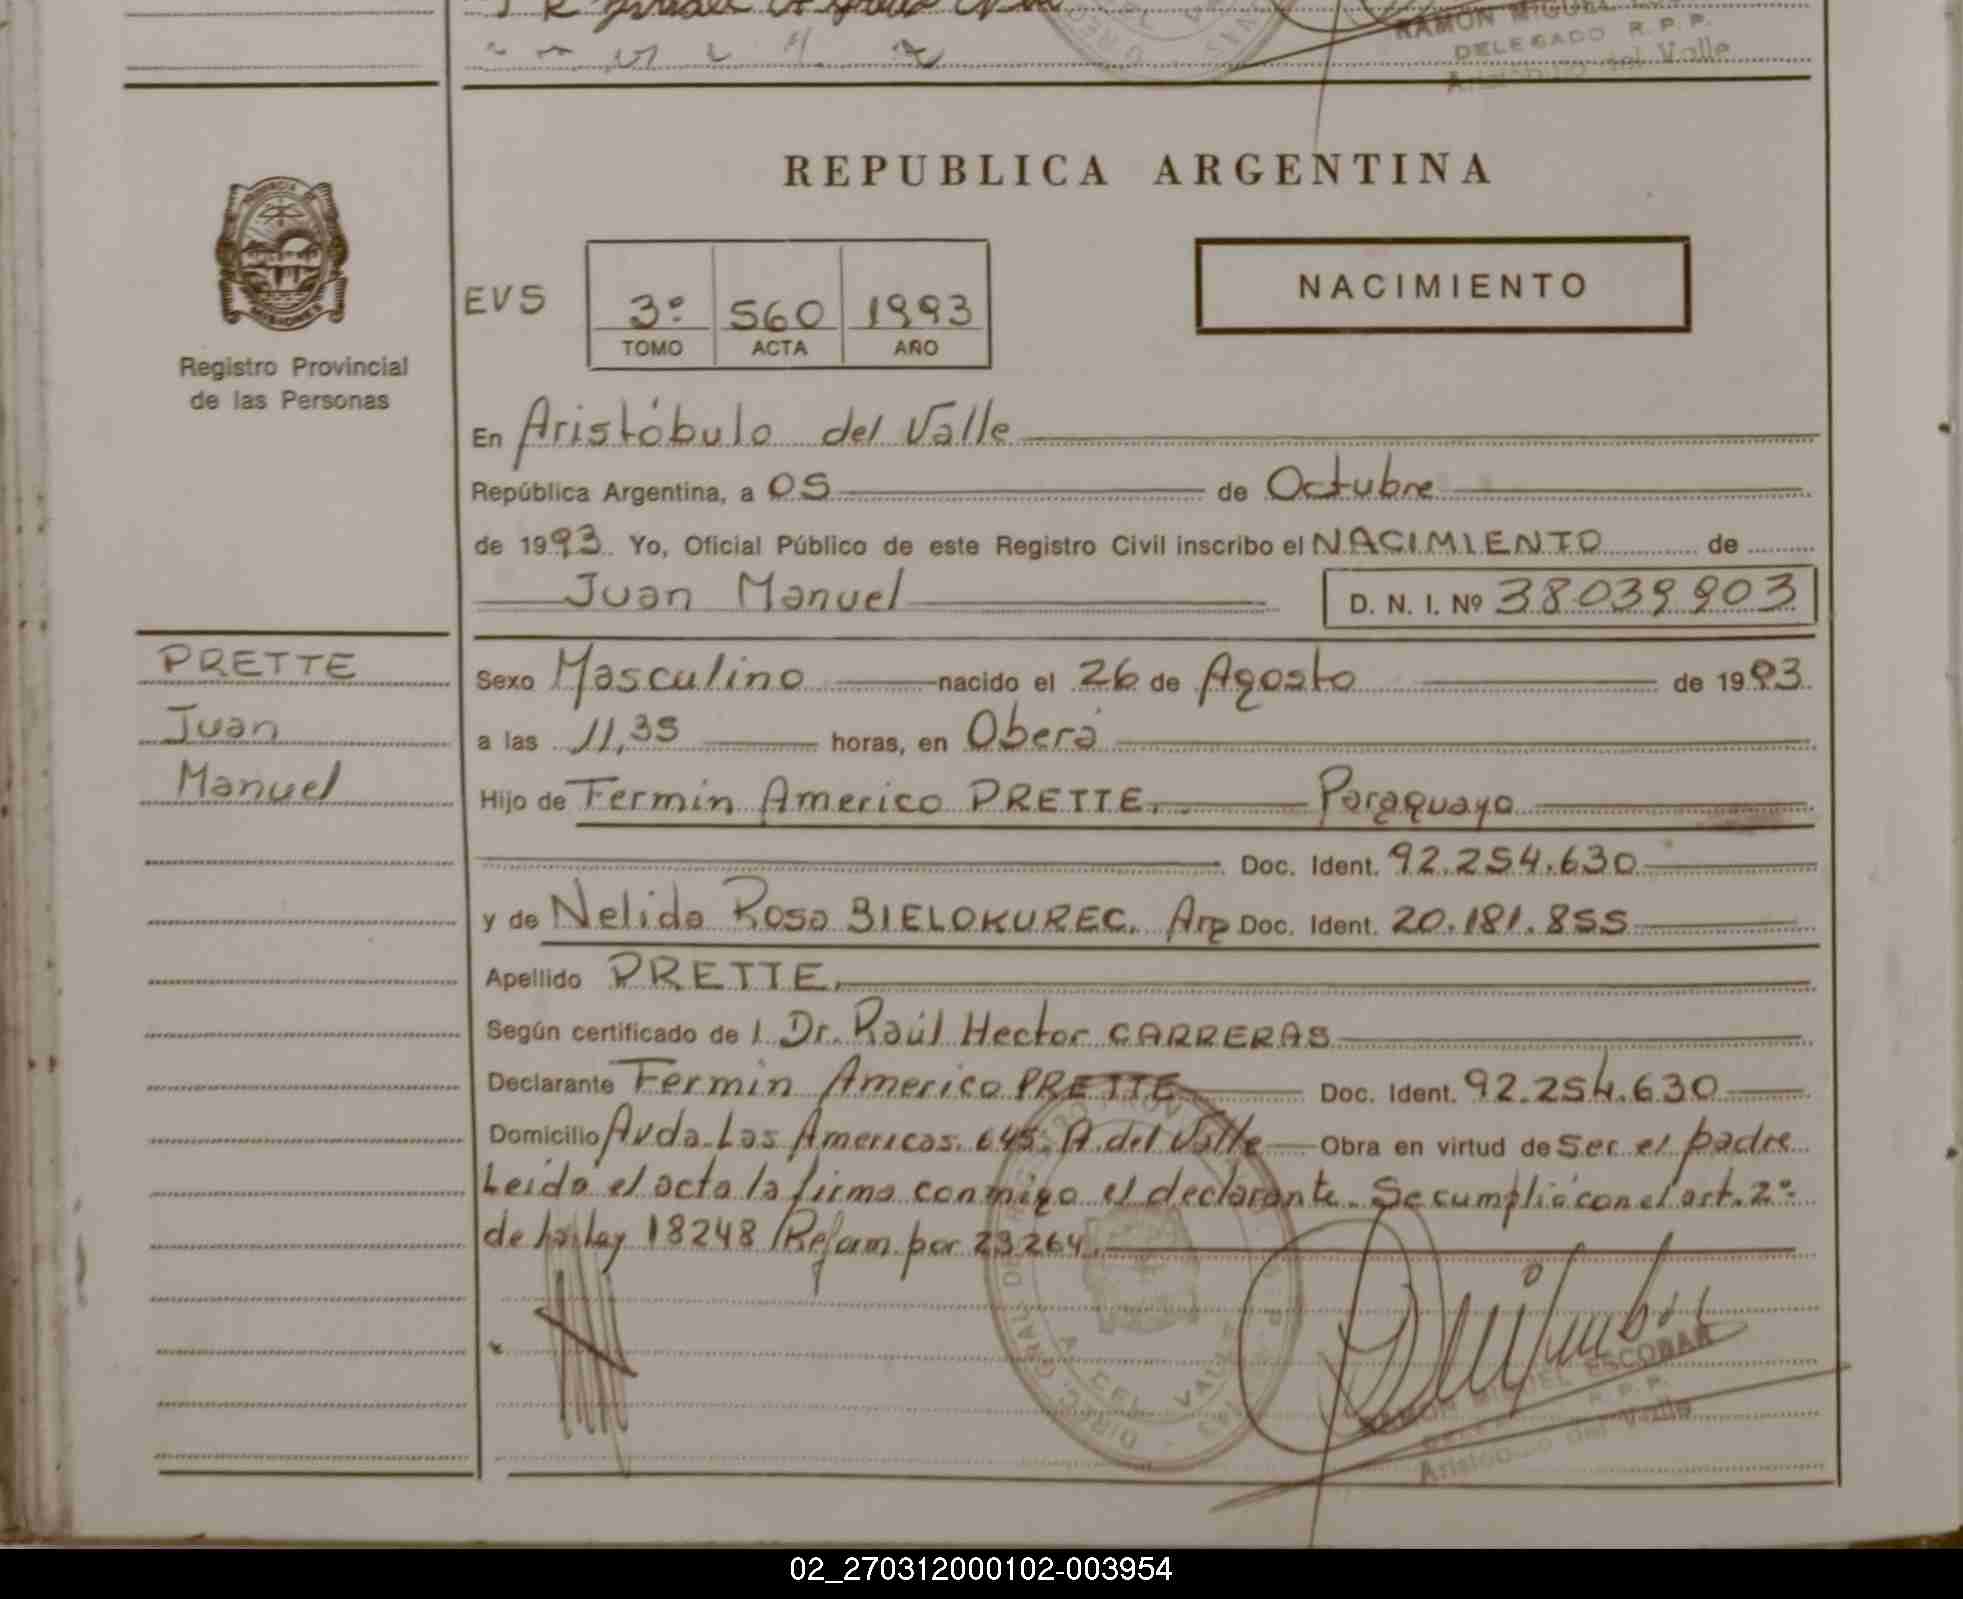 RAMON MIGUEL
DELEGADO R.P.P.
Aristóbulo del Valle
REPUBLICA ARGENTINA
NACIMIENTO
EVS
3º 560 1993
TOMO ACTA AÑO
Registro Provincial
de las Personas
En Aristóbulo del Valle
República Argentina, a 05 de Octubre
de 1993. Yo, Oficial Público de este Registro Civil inscribo el NACIMIENTO de
Juan Manuel D. N. I. Nº 38039903
PRETTE
Juan
Manuel
Sexo Masculino nacido el 26 de Agosto de 1993.
a las 11,35 horas, en Oberá
Hijo de Fermin Americo PRETTE. Paraguayo
Doc. Ident. 92.254.630
y de Nelida Rosa BIELOKUREC. Arg Doc. Ident. 20.181.855
Apellido PRETTE.
Según certificado de l. Dr. Raúl Hector CARRERAS
Declarante Fermin Americo PRETTE Doc. Ident. 92.254.630
Domicilio Avda. Las Americas. 645. A. del Valle Obra en virtud de Ser el padre
Leida el acta la firma conmigo el declarante. Se cumplió con el art. 2º
de la Ley 18248 Refom. por 23264.
RAMON MIGUEL ESCOBAR
R.P.P.
Aristóbulo del Valle
02_270312000102-003954